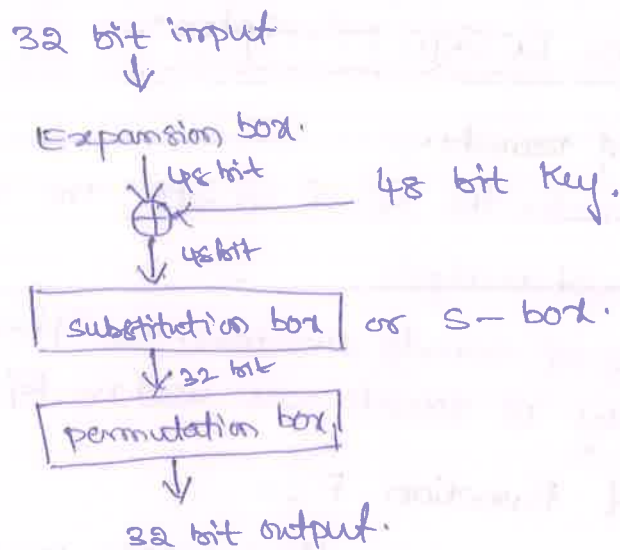 32 bit input
Expansion box.
48 bit
48 bit key.
48bit
substitution box or S-box.
32 bit
permutation box,
32 bit output.